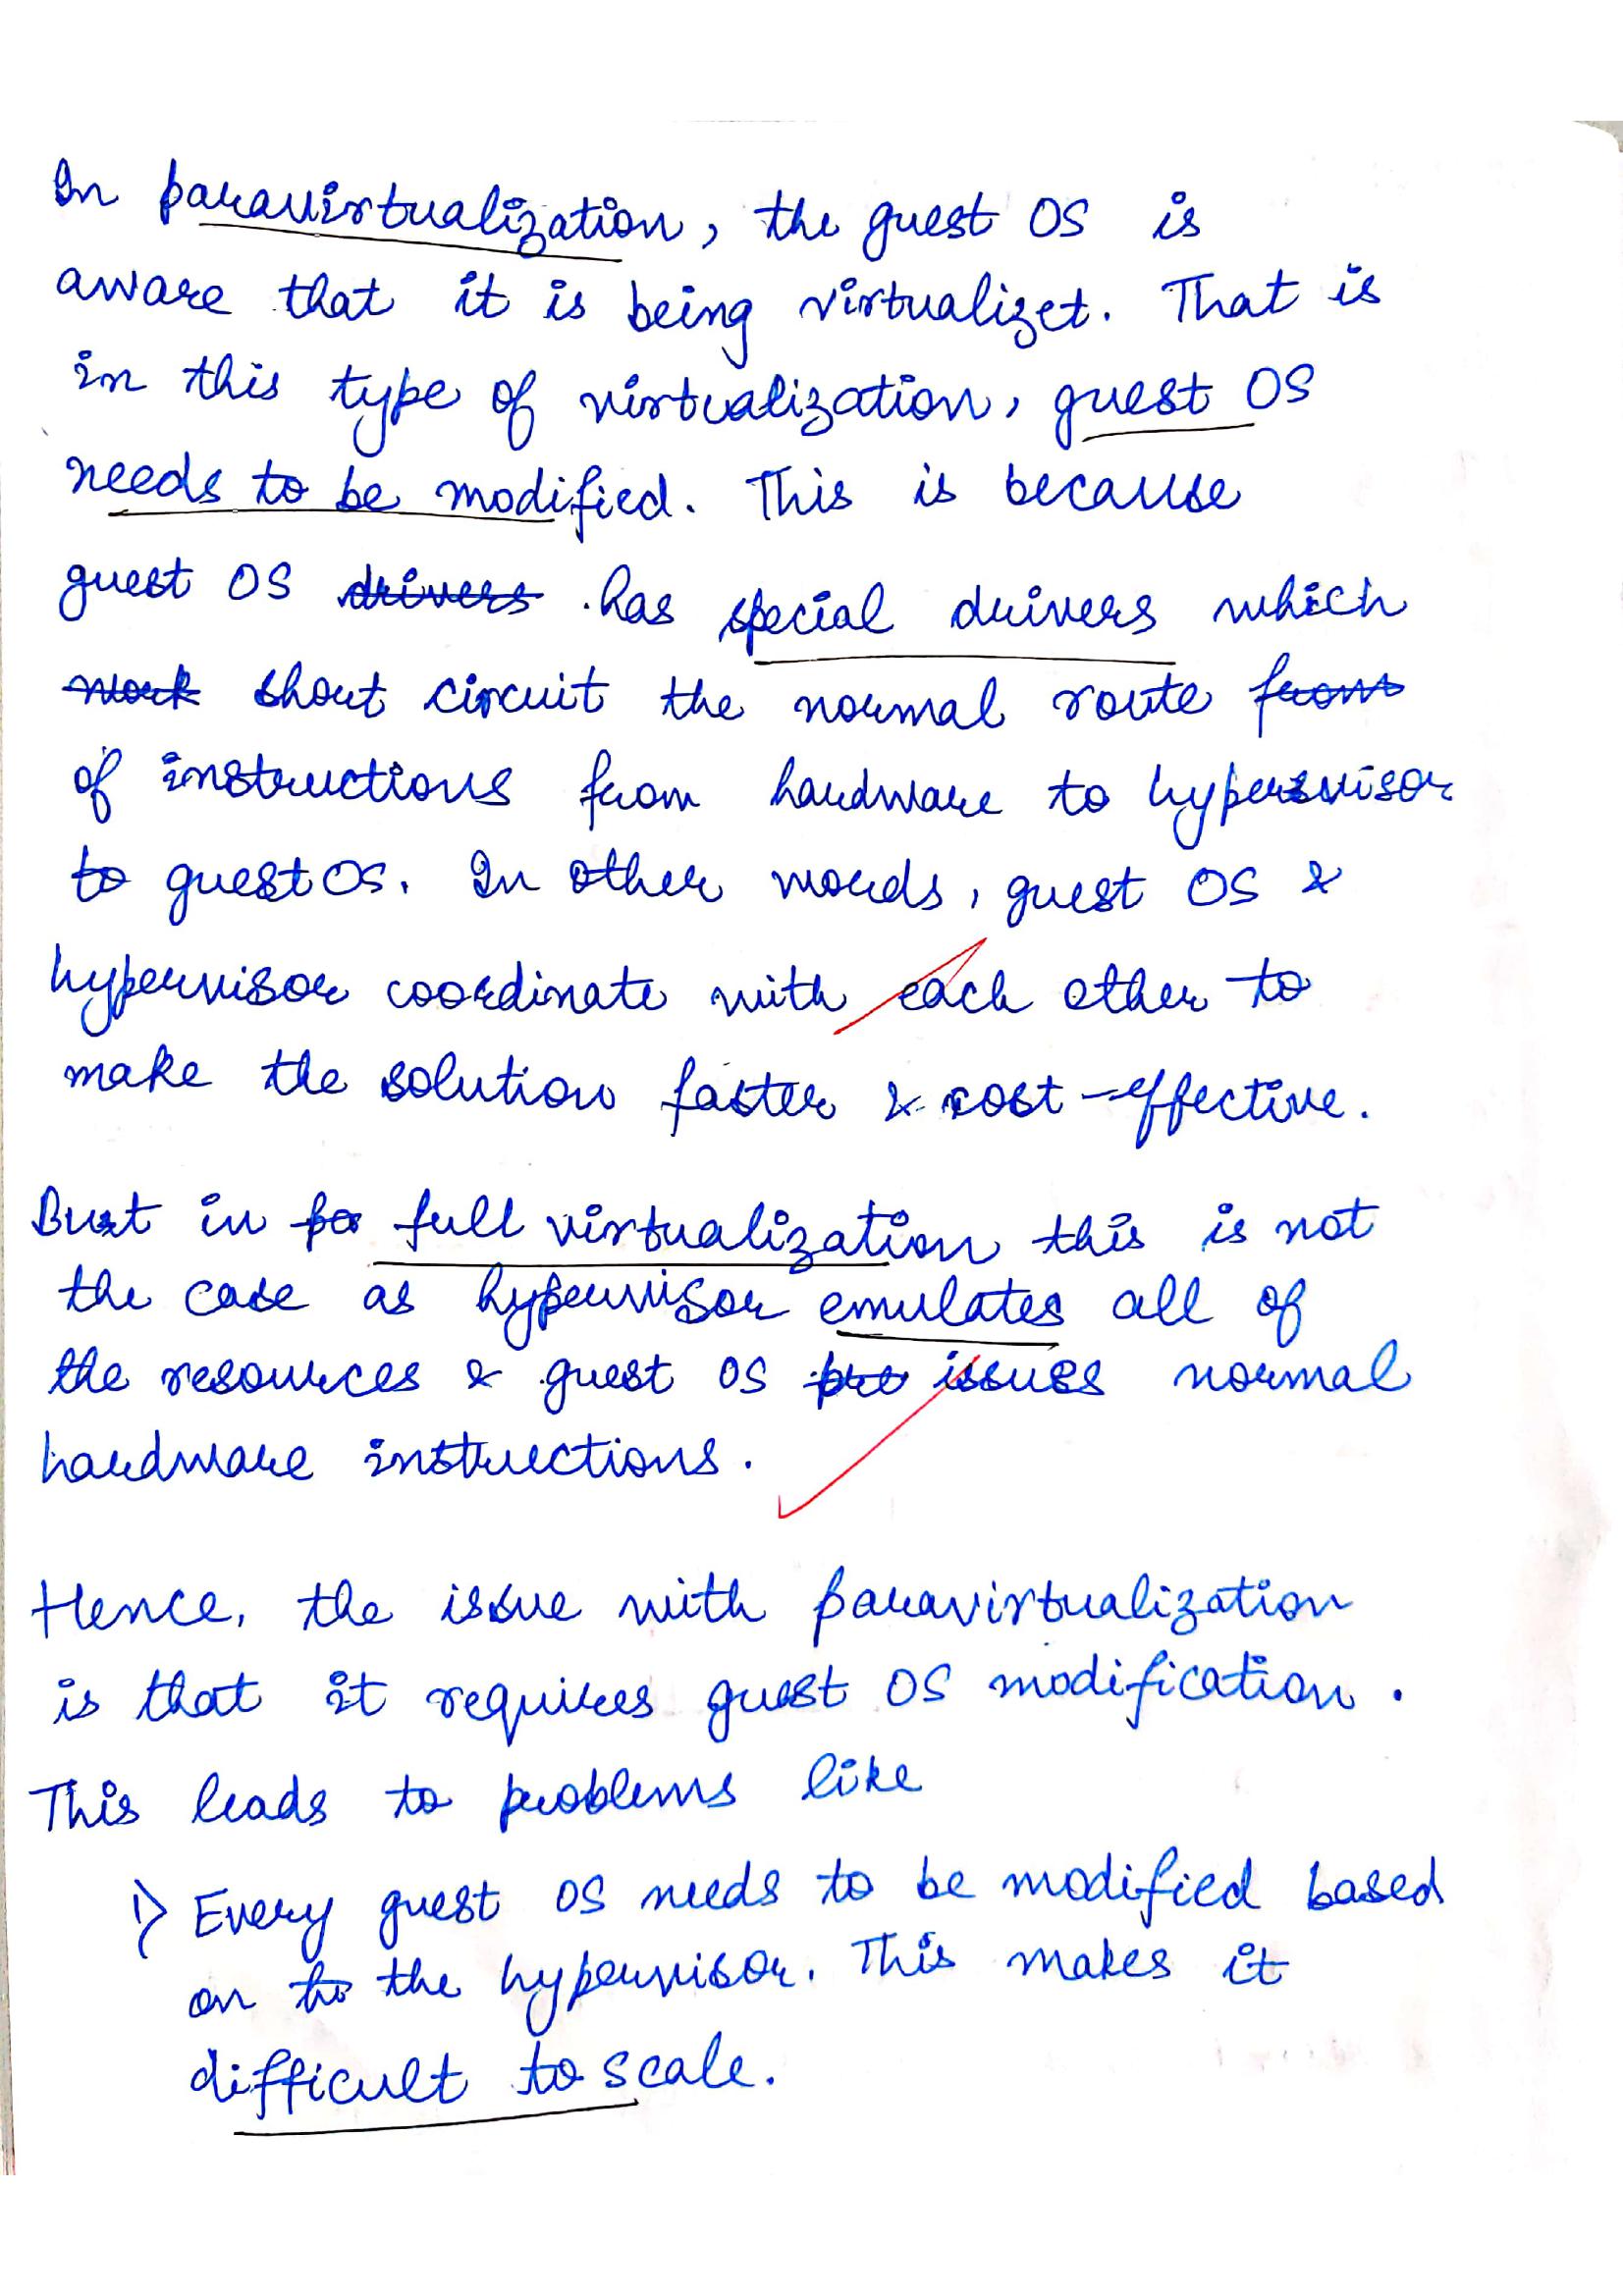 In paravirtualization, the guest OS is
aware that it is being virtualizet. That is
in this type of virtualization, guest OS
needs to be modified. This is because
guest OS drivers has special drivers which
work short circuit the normal route from
of instructions from hardware to hypervisor
to guest OS. In other words, guest OS &
hypervisor coordinate with each other to
make the solution faster & cost-effective.
But in pa full virtualization this is not
the case as hypervisor emulates all of
the resources & guest OS pro issues normal
hardware instructions.
Hence, the issue with paravirtualization
is that it requires guest OS modification.
This leads to problems like
1) Every guest OS needs to be modified based
on the hypervisor. This makes it
difficult to scale.